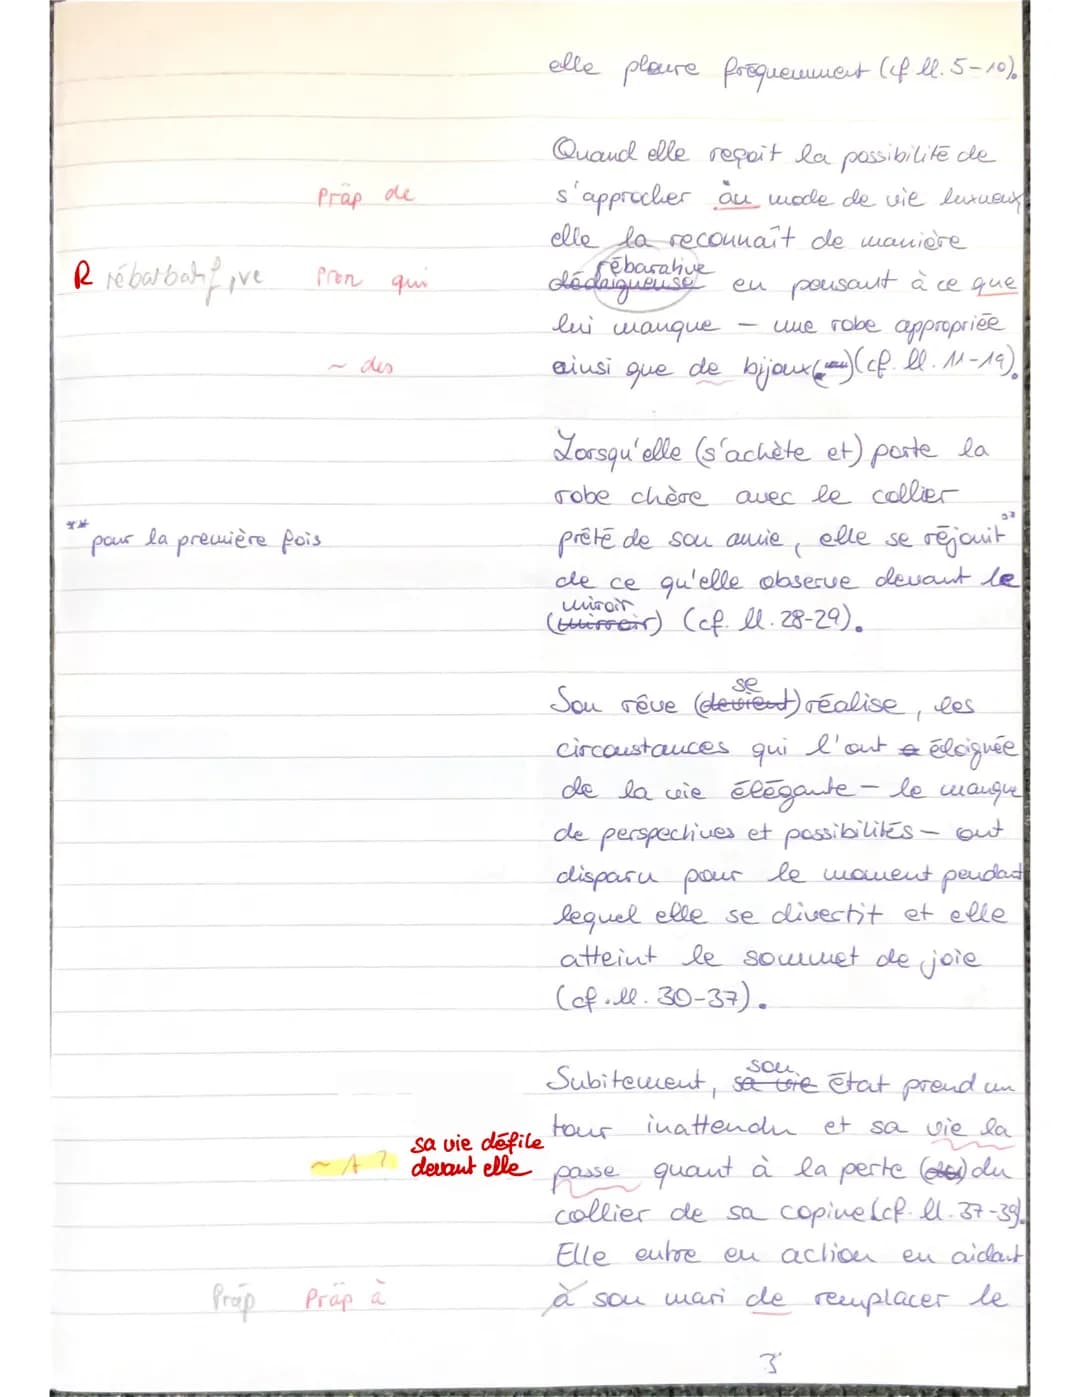 elle pleure fréquemment (cf ll. 5-10).
Quand elle reçoit la possibilité de
Präp de s'approcher au mode de vie luxueux
elle la reconnaît de manière
R rébarbatif, ve Pron qui rébarative dédaigneuse en pensant à ce que
lui manque – une robe appropriée
~ des ainsi que de bijoux (cf. ll. 11-19).
Lorsqu'elle (s'achète et) porte la
robe chère avec le collier
** pour la première fois prêté de son amie, elle se réjouit **
de ce qu'elle observe devant le
miroir (mirroir) (cf. ll. 28-29).
Son rêve (devient) se réalise, les
circonstances qui l'ont éloignée
de la vie élégante – le manque
de perspectives et possibilités – ont
disparu pour le moment pendant
lequel elle se divertit et elle
atteint le sommet de joie
(cf. ll. 30-37).
Subitement, sa vie son état prend un
tour inattendu et sa vie la
~ A ? sa vie défile devant elle passe quant à la perte (de) du
collier de sa copine (cf. ll. 37-39).
Elle entre en action en aidant
Präp Präp à à son mari de remplacer le
3